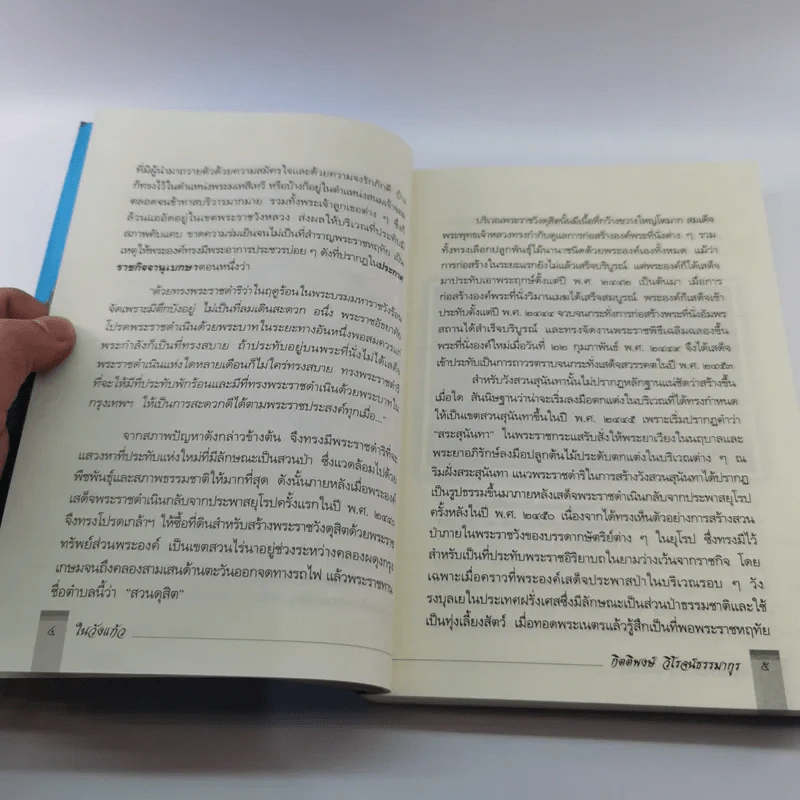 ที่มีผู้นำมาถวายตัวด้วยความสมัครใจและด้วยความจงรักภักดี บ้าง
ก็ทรงไว้ในตำแหน่งพระมเหสีเทวี หรือบ้างก็อยู่ในตำแหน่งสนมเจ้าจอม
ตลอดจนข้าทาสบริวารมากมาย รวมทั้งพระเจ้าลูกเธอต่าง ๆ ซึ่ง
ล้วนแออัดอยู่ในเขตพระราชวังหลวง ส่งผลให้บริเวณที่ประทับมี
สภาพคับแคบ ขาดความร่มเย็นจนไม่เป็นที่สำราญพระราชหฤทัย เป็น
เหตุให้พระองค์ทรงมีพระอาการประชวรบ่อย ๆ ดังที่ปรากฏในประกาศ
ราชกิจจานุเบกษาตอนหนึ่งว่า
"ด้วยทรงพระราชดำริว่าในฤดูร้อนในพระบรมมหาราชวังร้อน
จัดเพราะมีตึกบังอยู่ ไม่เป็นที่ลมเดินสะดวก อนึ่ง พระราชอัธยาศัย
โปรดพระราชดำเนินด้วยพระบาทในระยะทางอันหนึ่งพอสมควรแก่
พระกำลังก็เป็นที่ทรงสบาย ถ้าประทับอยู่บนพระที่นั่งไม่ได้เสด็จ
พระราชดำเนินแห่งใดหลายเดือนก็ไม่ใคร่ทรงสบาย ทรงพระราชดำริ
ที่จะให้มีที่ประทับพักร้อนและมีที่ทรงพระราชดำเนินด้วยพระบาทใน
กรุงเทพฯ ให้เป็นการสะดวกดีได้ตามพระราชประสงค์ทุกเมื่อ..."
จากสภาพปัญหาดังกล่าวข้างต้น จึงทรงมีพระราชดำริที่จะ
แสวงหาที่ประทับแห่งใหม่ที่มีลักษณะเป็นสวนป่า ซึ่งแวดล้อมไปด้วย
พืชพันธุ์และสภาพธรรมชาติให้มากที่สุด ดังนั้นภายหลังเมื่อพระองค์
เสด็จพระราชดำเนินกลับจากประพาสยุโรปครั้งแรกในปี พ.ศ. ๒๔๔๐
จึงทรงโปรดเกล้าฯ ให้ซื้อที่ดินสำหรับสร้างพระราชวังดุสิตด้วยพระราช
ทรัพย์ส่วนพระองค์ เป็นเขตสวนไร่นาอยู่ช่วงระหว่างคลองผดุงกรุง
เกษมจนถึงคลองสามเสนด้านตะวันออกจดทางรถไฟ แล้วพระราชทาน
ชื่อตำบลนี้ว่า "สวนดุสิต"
๔ ในวังแก้ว
บริเวณพระราชวังดุสิตนั้นมีเนื้อที่กว้างขวางใหญ่โตมาก สมเด็จ
พระพุทธเจ้าหลวงทรงกำกับดูแลการก่อสร้างองค์พระที่นั่งต่าง ๆ รวม
ทั้งทรงเลือกปลูกพันธุ์ไม้นานาชนิดด้วยพระองค์เองทั้งหมด แม้ว่า
การก่อสร้างในระยะแรกยังไม่แล้วเสร็จบริบูรณ์ แต่พระองค์ก็ได้เสด็จ
มาประทับเอาพระฤกษ์ตั้งแต่ปี พ.ศ. ๒๔๔๒ เป็นต้นมา เมื่อการ
ก่อสร้างองค์พระที่นั่งวิมานเมฆได้เสร็จสมบูรณ์ พระองค์ก็เสด็จเข้า
ประทับตั้งแต่ปี พ.ศ. ๒๔๔๔ จวบจนกระทั่งการก่อสร้างพระที่นั่งอัมพร
สถานได้สำเร็จบริบูรณ์ และทรงจัดงานพระราชพิธีเฉลิมฉลองขึ้น
พระที่นั่งองค์ใหม่เมื่อวันที่ ๒๒ กุมภาพันธ์ พ.ศ. ๒๔๔๙ จึงได้เสด็จ
เข้าประทับเป็นการถาวรตราบจนกระทั่งเสด็จสวรรคตในปี พ.ศ. ๒๔๕๓
สำหรับวังสวนสุนันทานั้นไม่ปรากฏหลักฐานแน่ชัดว่าสร้างขึ้น
เมื่อใด สันนิษฐานว่าน่าจะเริ่มลงมือตกแต่งในบริเวณที่ได้ทรงกำหนด
ให้เป็นเขตสวนสุนันทาขึ้นในปี พ.ศ. ๒๔๔๕ เพราะเริ่มปรากฏคำว่า
"สระสุนันทา" ในพระราชกระแสรับสั่งให้พระยาเวียงในนฤบาลและ
พระยาอภิรักษ์ลงมือปลูกต้นไม้ประดับตกแต่งในบริเวณต่าง ๆ ณ
ริมฝั่งสระสุนันทา แนวพระราชดำริในการสร้างวังสวนสุนันทาได้ปรากฏ
เป็นรูปธรรมขึ้นมาภายหลังเสด็จพระราชดำเนินกลับจากประพาสยุโรป
ครั้งหลังในปี พ.ศ. ๒๔๕๐ เนื่องจากได้ทรงเห็นตัวอย่างการสร้างสวน
ป่าภายในพระราชวังของบรรดากษัตริย์ต่าง ๆ ในยุโรป ซึ่งทรงมีไว้
สำหรับเป็นที่ประทับพระราชอิริยาบถในยามว่างเว้นจากราชกิจ โดย
เฉพาะเมื่อคราวที่พระองค์เสด็จประพาสป่าในบริเวณรอบ ๆ วัง
รงบุลเยในประเทศฝรั่งเศสซึ่งมีลักษณะเป็นส่วนป่าธรรมชาติและใช้
เป็นทุ่งเลี้ยงสัตว์ เมื่อทอดพระเนตรแล้วรู้สึกเป็นที่พอพระราชหฤทัย
กิตติพงษ์ วิโรจน์ธรรมากูร ๕